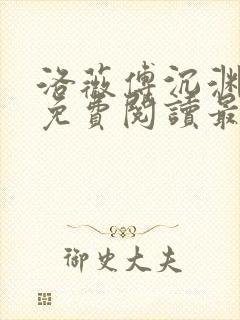 洛薇傅沉渊
免費閱讀最
御史大夫